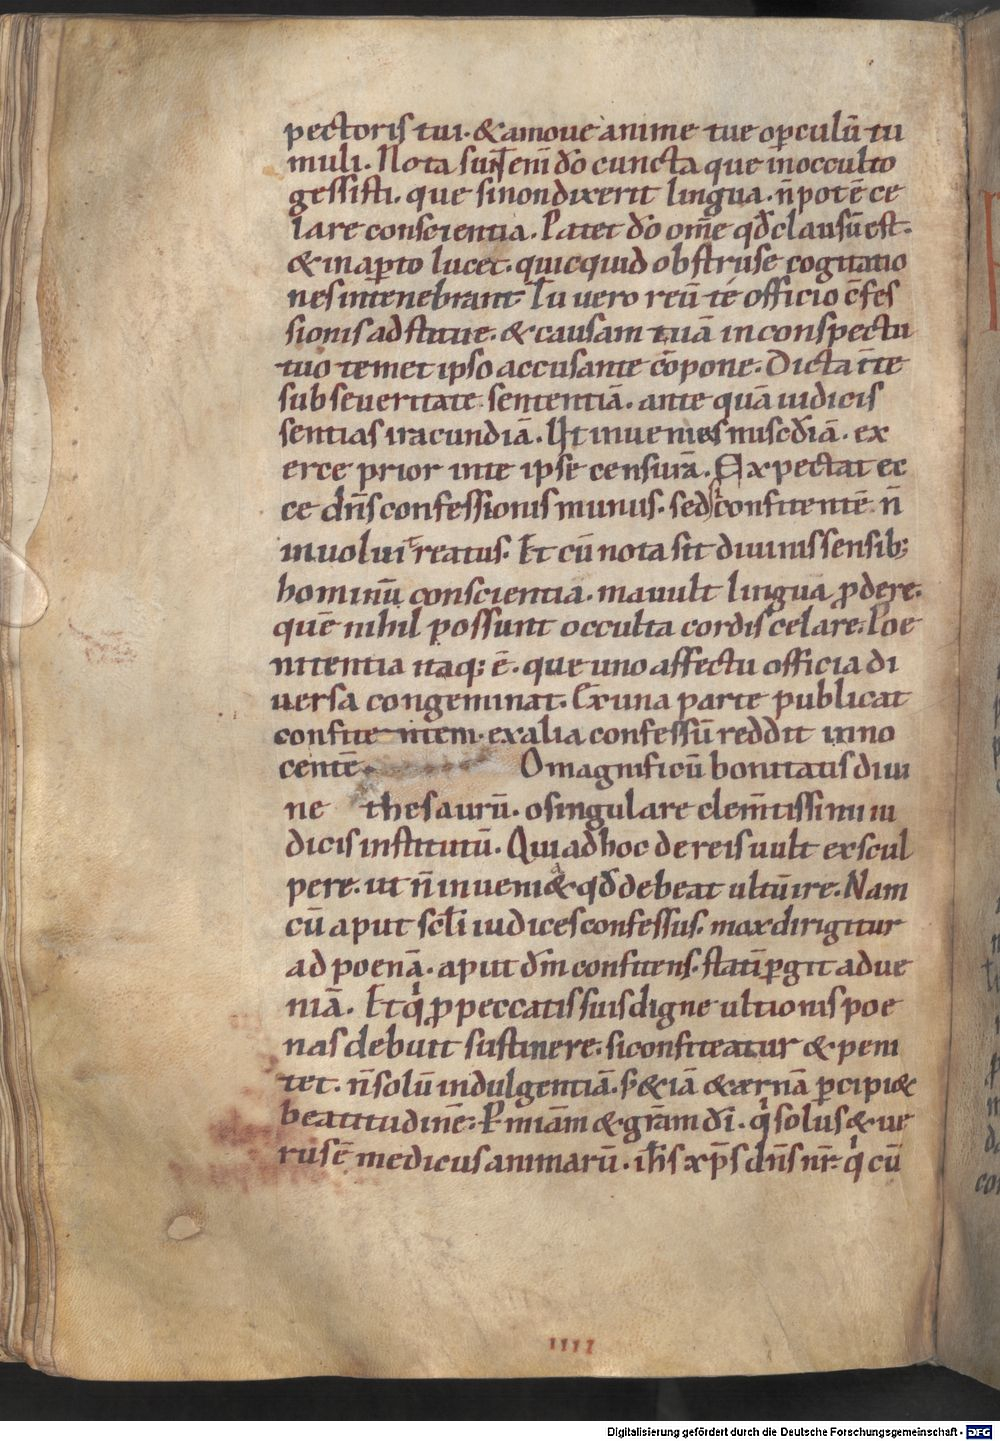 pectoris tui. & amoue anime tue opculū tu
muli. Nota sunt enī dō cuncta que in occulto
gessisti. que si non dixerit lingua. n̄ potē ce
lare conscientia. Patet dō om̄e qđ clausū est.
& in apto lucet. quicquid obstruse cogitatio
nes intenebrant Tu uero reū té officio c̄fes
sionis adstitue. & causam tuā in conspectu
tuo temet ipso accusante cōpone. Dicta ī te
sub seueritate sententiā. ante quā iudicis
sentias iracundiā. Ut inuenies miscđiā. ex
erce prior in te ipse censurā. Expectat ec
ce dn̄s confessionis munus. sed confitentē n̄
inuolui reatus. Et cū nota sit diuinis sensib;
hominū conscientia. mauult lingua pdere.
quē nihil possunt occulta cordis celare. Poe
nitentia itaq; ē. que uno affectu officia di
uersa congeminat. Ex una parte publicat
confitentem. ex alia confessū reddit inno
centē. O magnificū bonitatis diui
ne thesaurū. o singulare clem̄tissimi iu
dicis institutū. Qui ad hoc de reis uult exscul
pere. ut n̄ inueniat qđ debeat ultū ire. Nam
cū aput sc̄li iudices confessus. max dirigitur
ad poenā. aput dm̄ confitens. statī pgit ad ue
niā. Et q ppeccatis suis digne ultionis poe
nas debuit sustinere. si confiteatur & peni
tet. n̄ solū indulgentiā. s; & iā & ærnā pcipi&
beatitudinē. P miām & grām dī. q solus & ue
rus ē medicus animarū. ih̄s xp̄s dn̄s nr̄. q cū
IIII
Digitalisierung gefördert durch die Deutsche Forschungsgemeinschaft - DFG